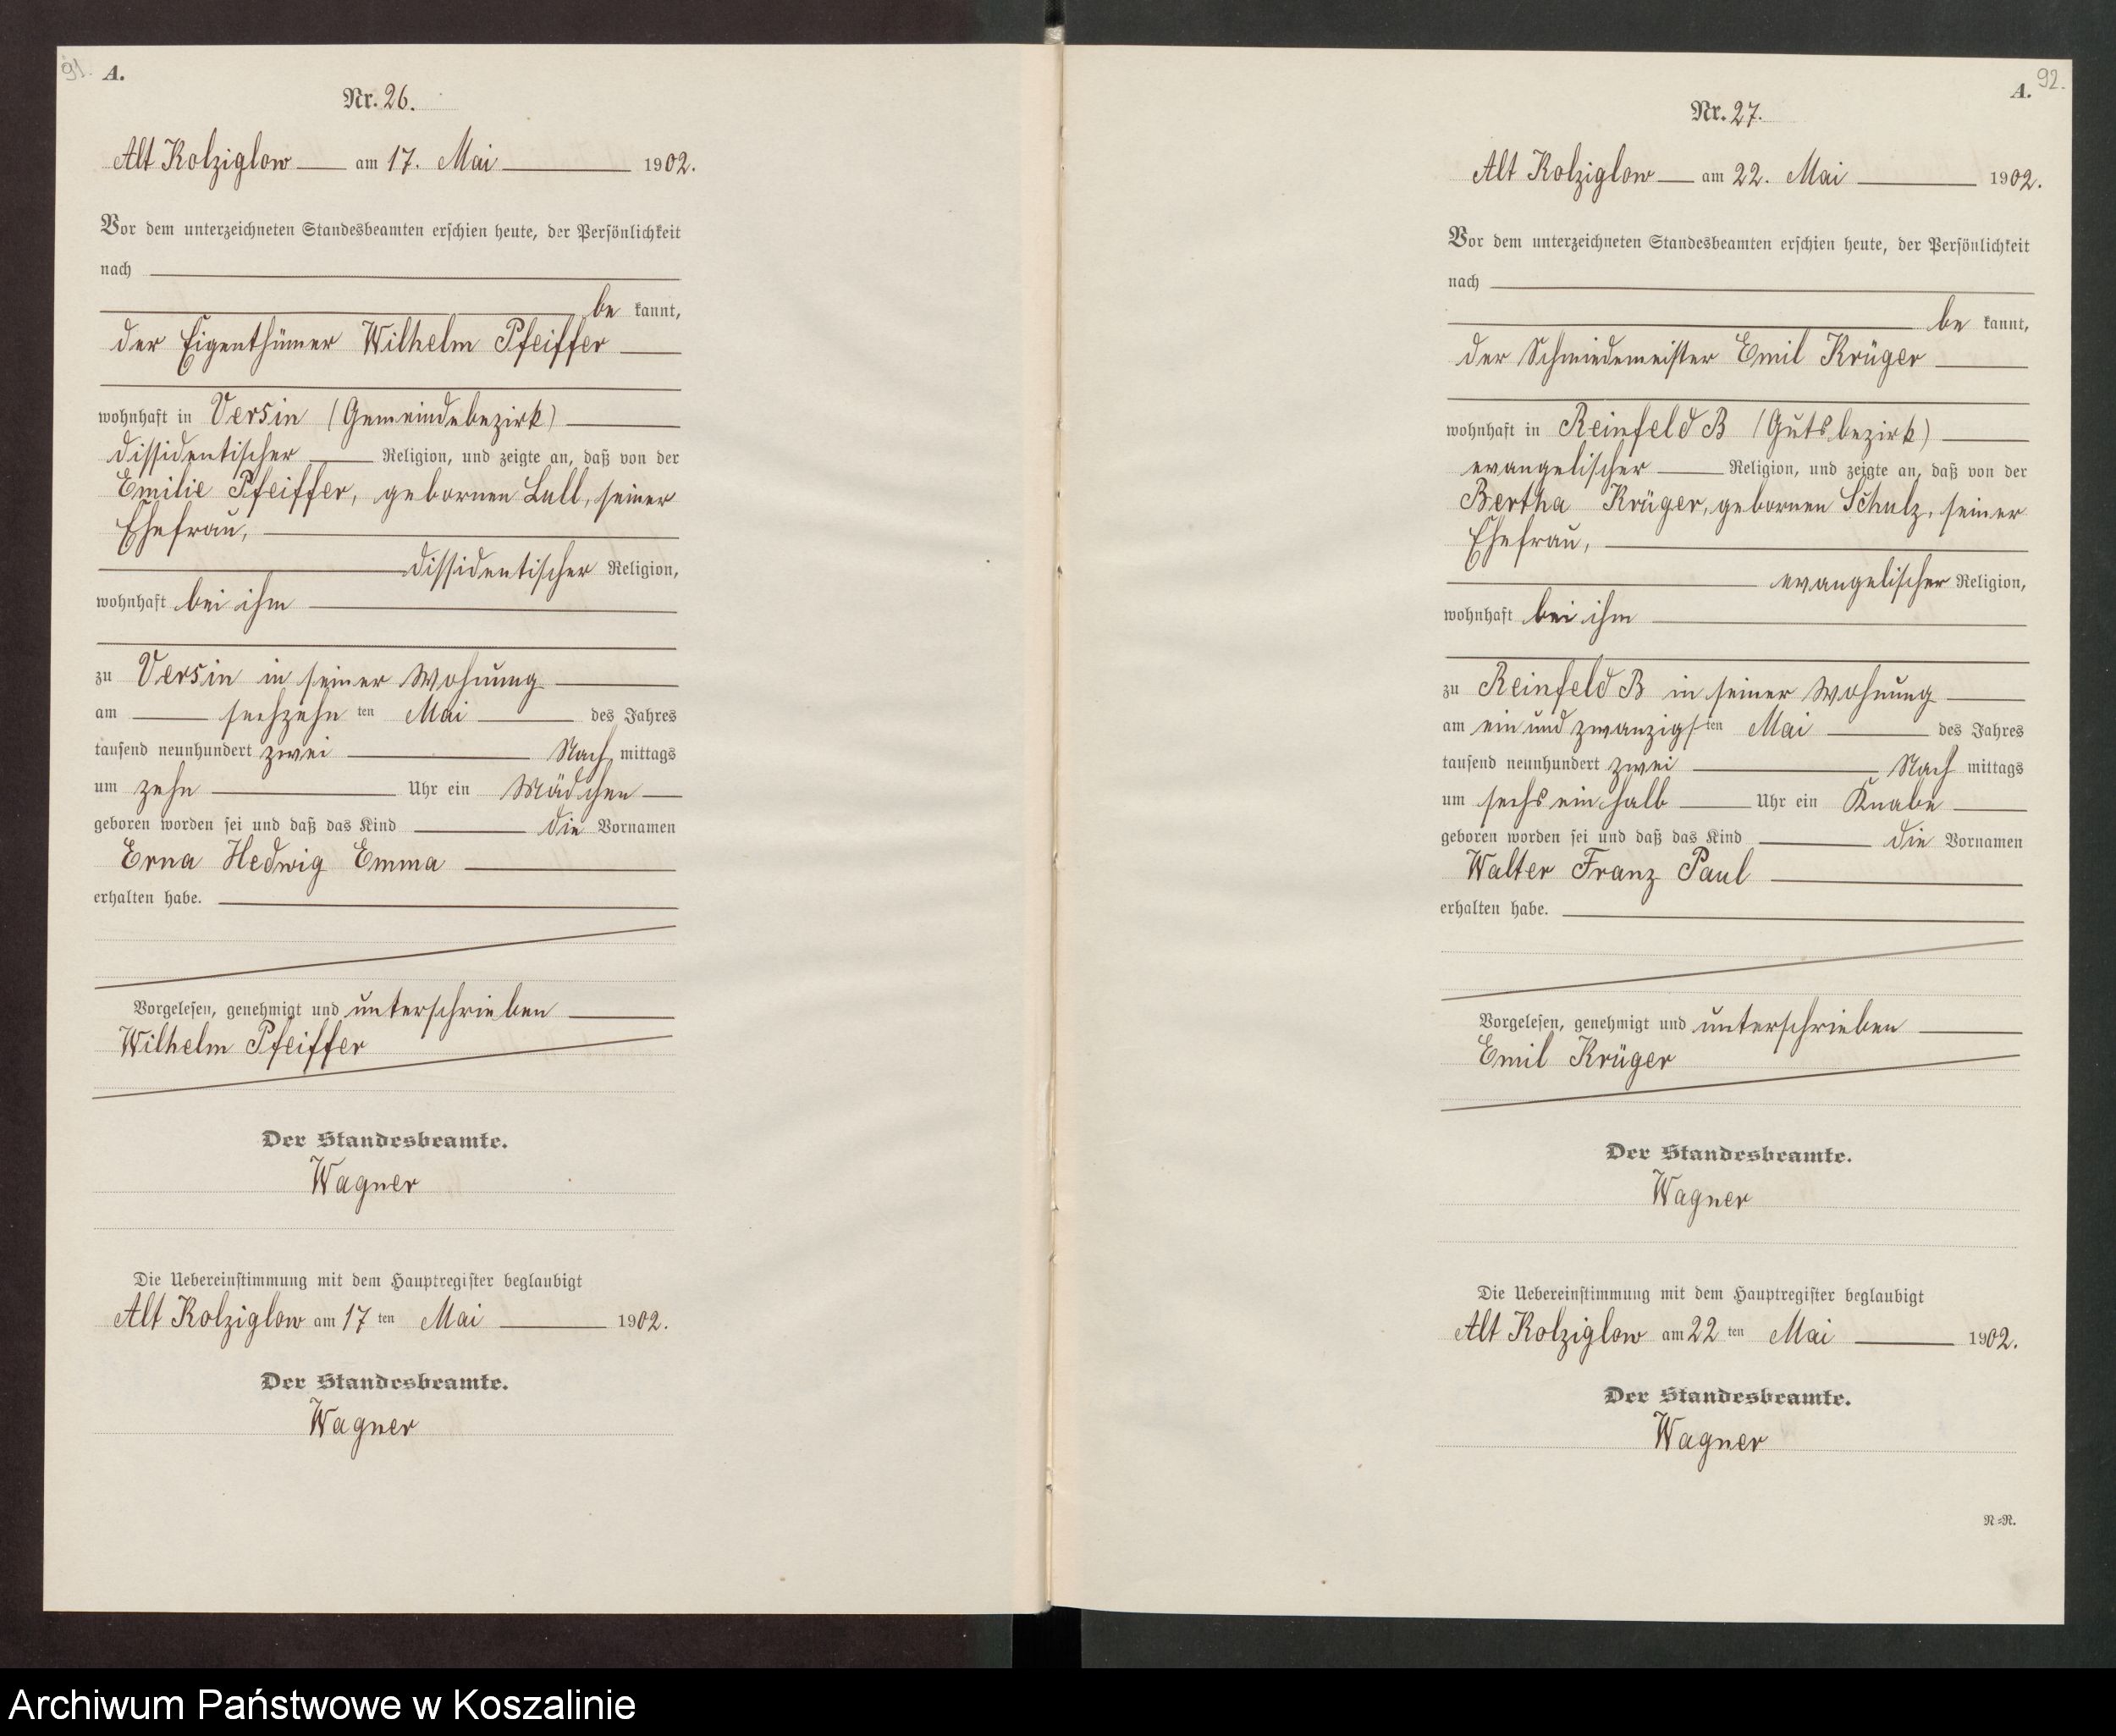 91. A.
Nr. 26.
Alt Kolziglow am 17. Mai 1902.
Vor dem unterzeichneten Standesbeamten erschien heute, der Persönlichkeit
nach
be kannt,
der Eigenthümer Wilhelm Pfeiffer
wohnhaft in Versin (Gemeindebezirk)
dissidentischer Religion, und zeigte an, daß von der
Emilie Pfeiffer, gebornen Lull, seiner
Ehefrau,
dissidentischer Religion,
wohnhaft bei ihm
zu Versin in seiner Wohnung
am sechzehn ten Mai des Jahres
tausend neunhundert zwei Nach mittags
um zehn Uhr ein Mädchen
geboren worden sei und daß das Kind die Vornamen
Erna Hedwig Emma
erhalten habe.
Vorgelesen, genehmigt und unterschrieben
Wilhelm Pfeiffer
Der Standesbeamte.
Wagner
Die Uebereinstimmung mit dem Hauptregister beglaubigt
Alt Kolziglow am 17 ten Mai 1902.
Der Standesbeamte.
Wagner
A. 92.
Nr. 27.
Alt Kolziglow am 22. Mai 1902.
Vor dem unterzeichneten Standesbeamten erschien heute, der Persönlichkeit
nach
be kannt,
der Schmiedemeister Emil Krüger
wohnhaft in Reinfeld B (Gutsbezirk)
evangelischer Religion, und zeigte an, daß von der
Bertha Krüger, gebornen Schulz, seiner
Ehefrau,
evangelischer Religion,
wohnhaft bei ihm
zu Reinfeld B in seiner Wohnung
am ein und zwanzigs ten Mai des Jahres
tausend neunhundert zwei Nach mittags
um sechs ein halb Uhr ein Knabe
geboren worden sei und daß das Kind die Vornamen
Walter Franz Paul
erhalten habe.
Vorgelesen, genehmigt und unterschrieben
Emil Krüger
Der Standesbeamte.
Wagner
Die Uebereinstimmung mit dem Hauptregister beglaubigt
Alt Kolziglow am 22 ten Mai 1902.
Der Standesbeamte.
Wagner
N=R.
Archiwum Państwowe w Koszalinie